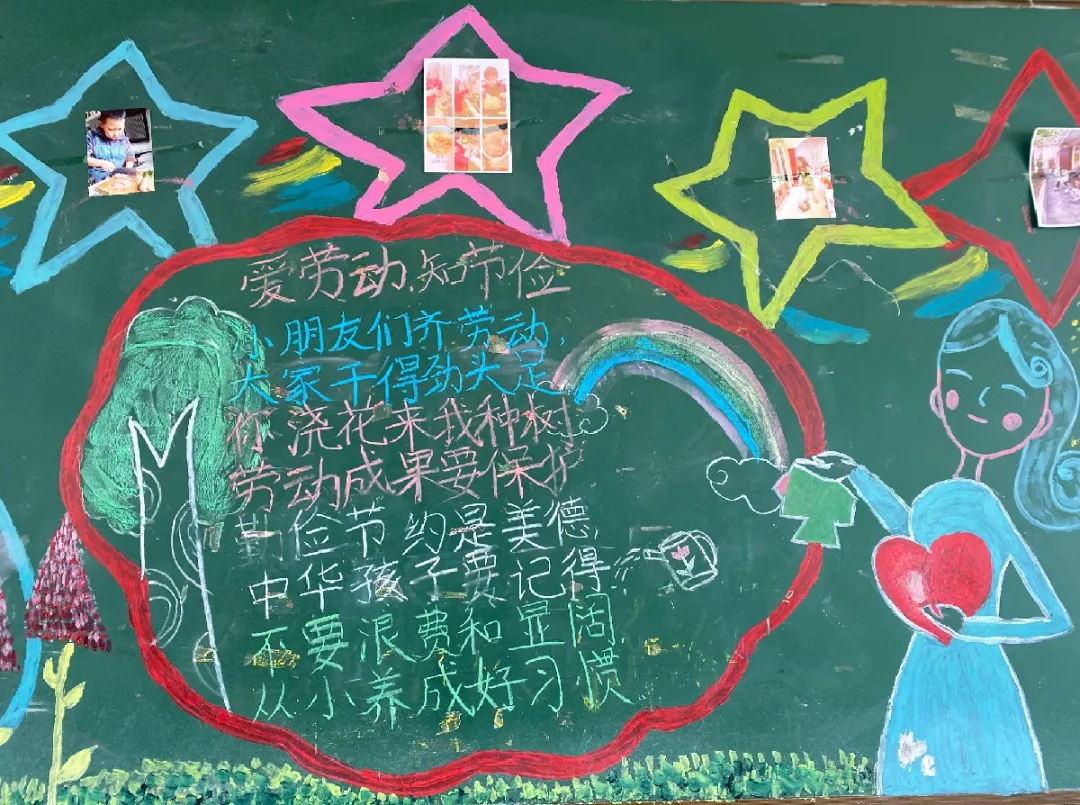 爱劳动,知节俭
小朋友们齐劳动,
大家干得劲头足
你浇花来我种树
劳动成果要保护
勤俭节约是美德
中华孩子要记得
不要浪费和显阔
从小养成好习惯